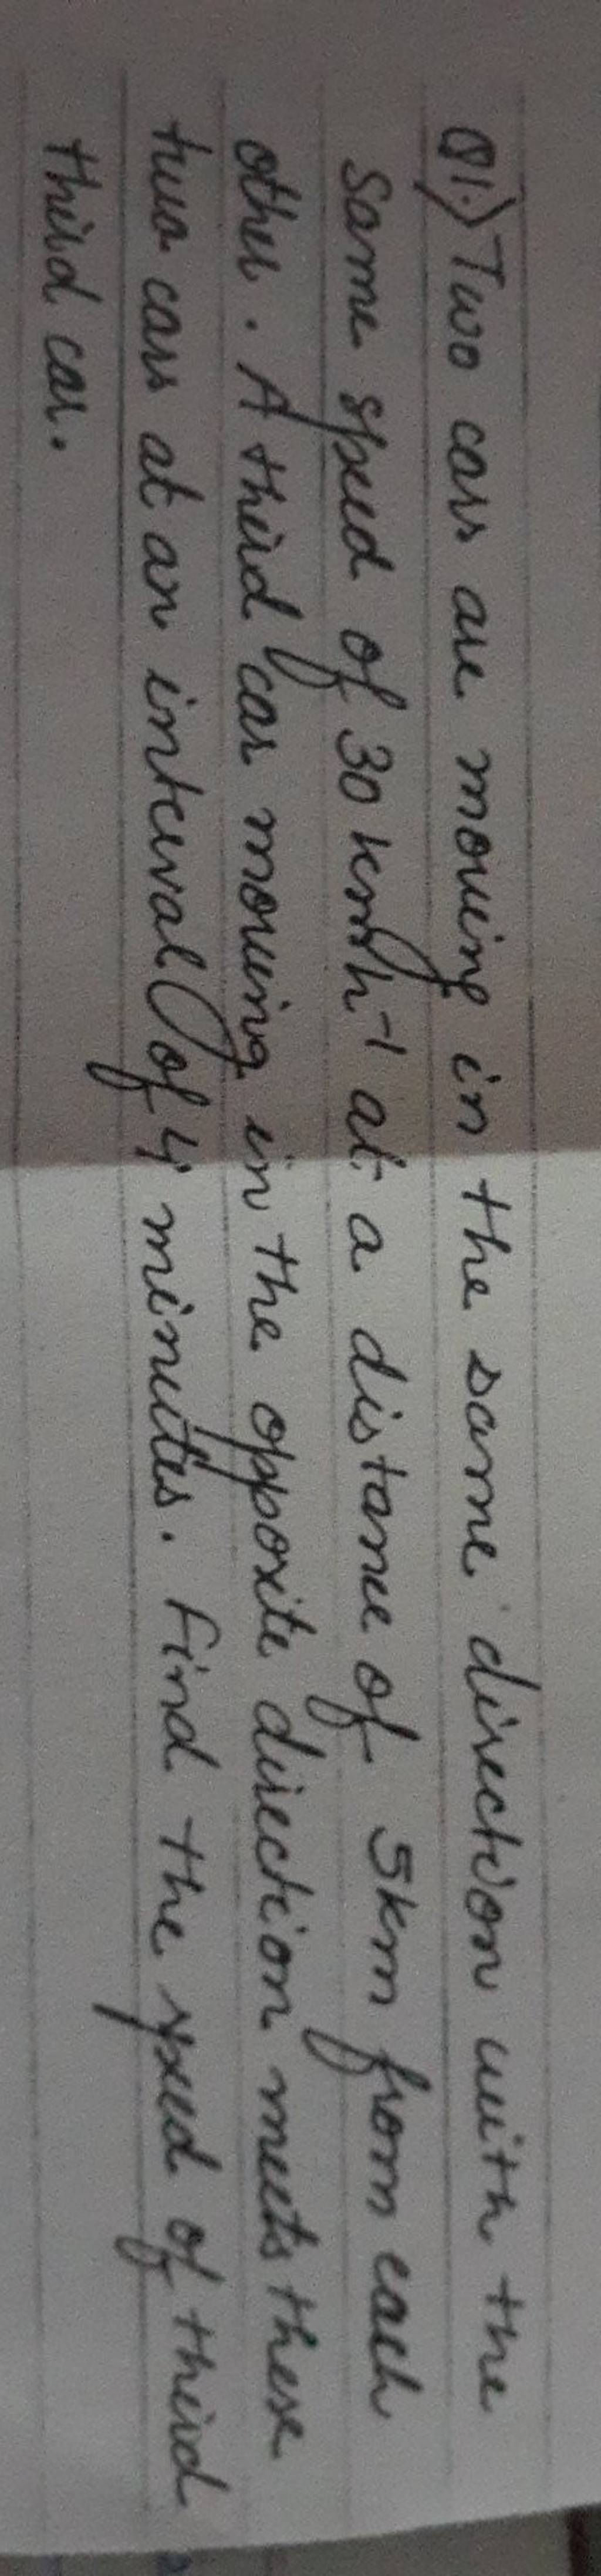 Q1.) Two cars are moving in the same direction with the
same speed of 30 kmh-1 at a distance of 5km from each
other. A third car moving in the opposite direction meets these
two cars at an interval of 4 minutes. Find the speed of third
third car.